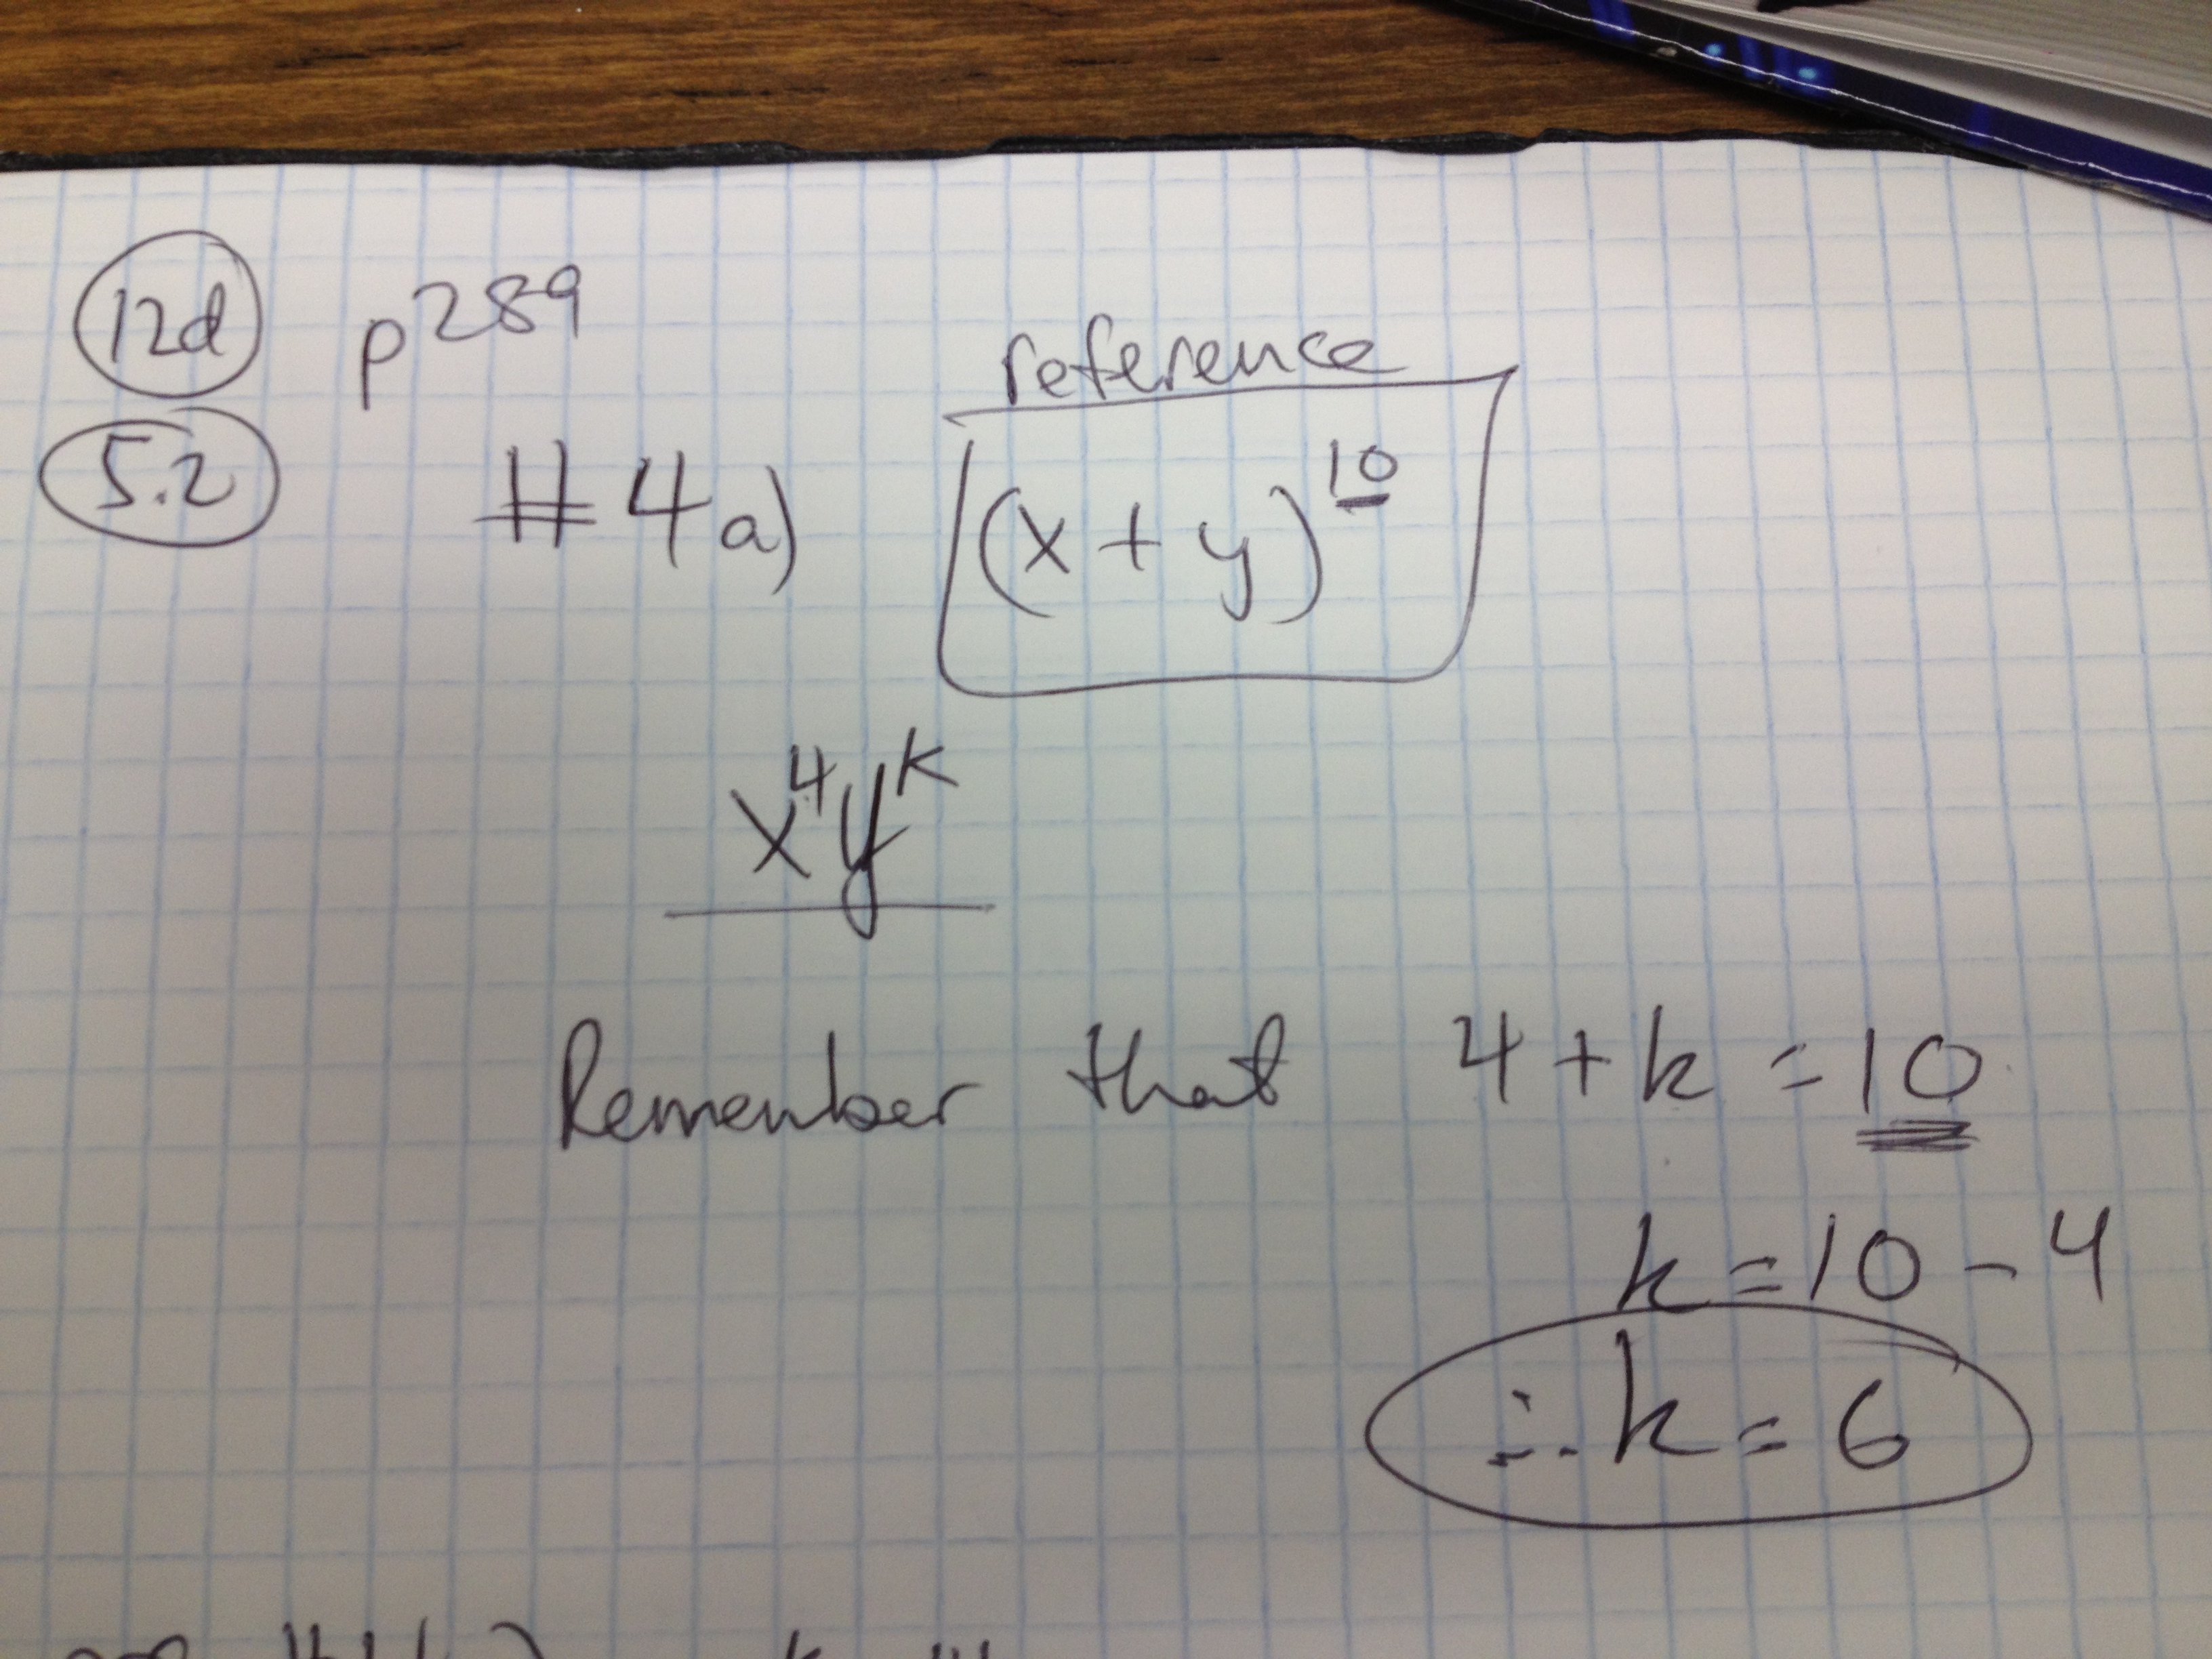 12d p289
5.2 #4a) reference
(x + y)^10
x^4y^k
Remember that 4 + k = 10
k = 10 - 4
∴ k = 6